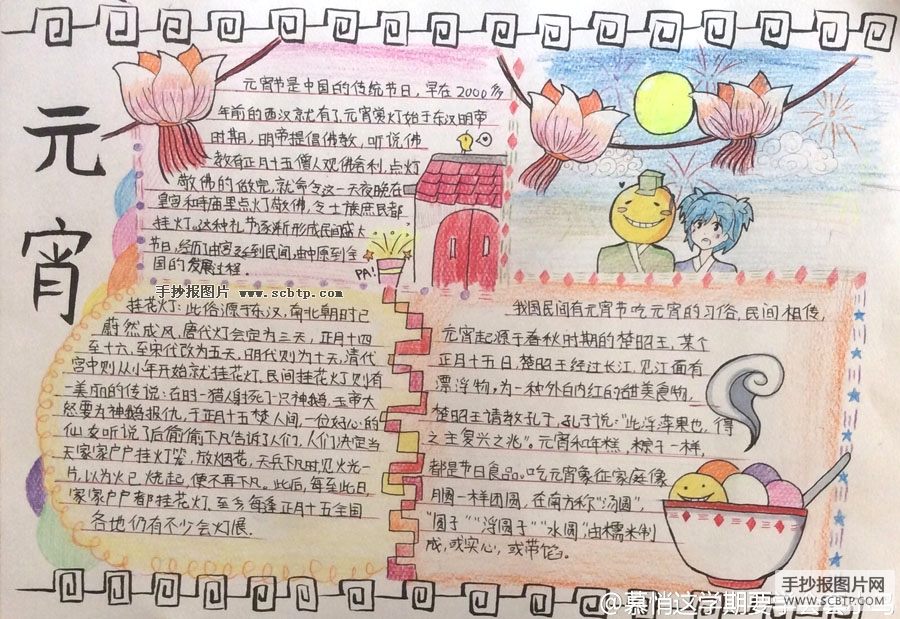 元宵
元宵节是中国的传统节日，早在2000多
年前的西汉就有了，元宵赏灯始于东汉明帝
时期，明帝提倡佛教，听说佛
教有正月十五僧人观佛舍利，点灯
敬佛的做完，就命令这一天夜晚在
皇宫和寺庙里点灯敬佛，令士族庶民都
挂灯。这种礼节家渐形成民间盛大
节日，经历由宫廷到民间，由中原到全
国的发展过程。
PA!
手抄报图片 www.scbtp.com
挂花灯：此俗源于东汉，南北朝时已
蔚然成风，唐代灯会定为三天，正月十四
至十六，至宋代改为五天，明代则为十天，清代
宫中则从小年开始就挂花灯，民间挂花灯则有
一美丽的传说：在时一猎人射死了一只神鹅，玉帝大
然要为神鹅报仇，于正月十五焚人间，一位好心的
仙女听说了后偷偷下凡告诉了人们，人们决定当
天家家户户挂灯笼，放烟花，天兵下凡时，见火光一
片，以为火已烧起，便不再下凡。此后，每至此日，
家家户户都挂花灯，至今每逢正月十五全国
各地仍有不少会灯展。
我国民间有元宵节吃元宵的习俗，民间相传，
元宵起源于春秋时期的楚昭王，某个
正月十五日，楚昭王经过长江，见江面有
漂浮物，为一种外白内红的甜美食物，
楚昭王请教孔子，孔子说："此浮萍果也，得
之主复兴之兆"。元宵和年糕，粽子一样，
都是节日食品。吃元宵象征家庭像
月圆一样团圆，在南方称"汤圆"，
"圆子""浮圆子""水圆"，由糯米制
成，或实心，或带馅。
手抄报图片网
WWW.SCBTP.COM
@慕悄这学期要